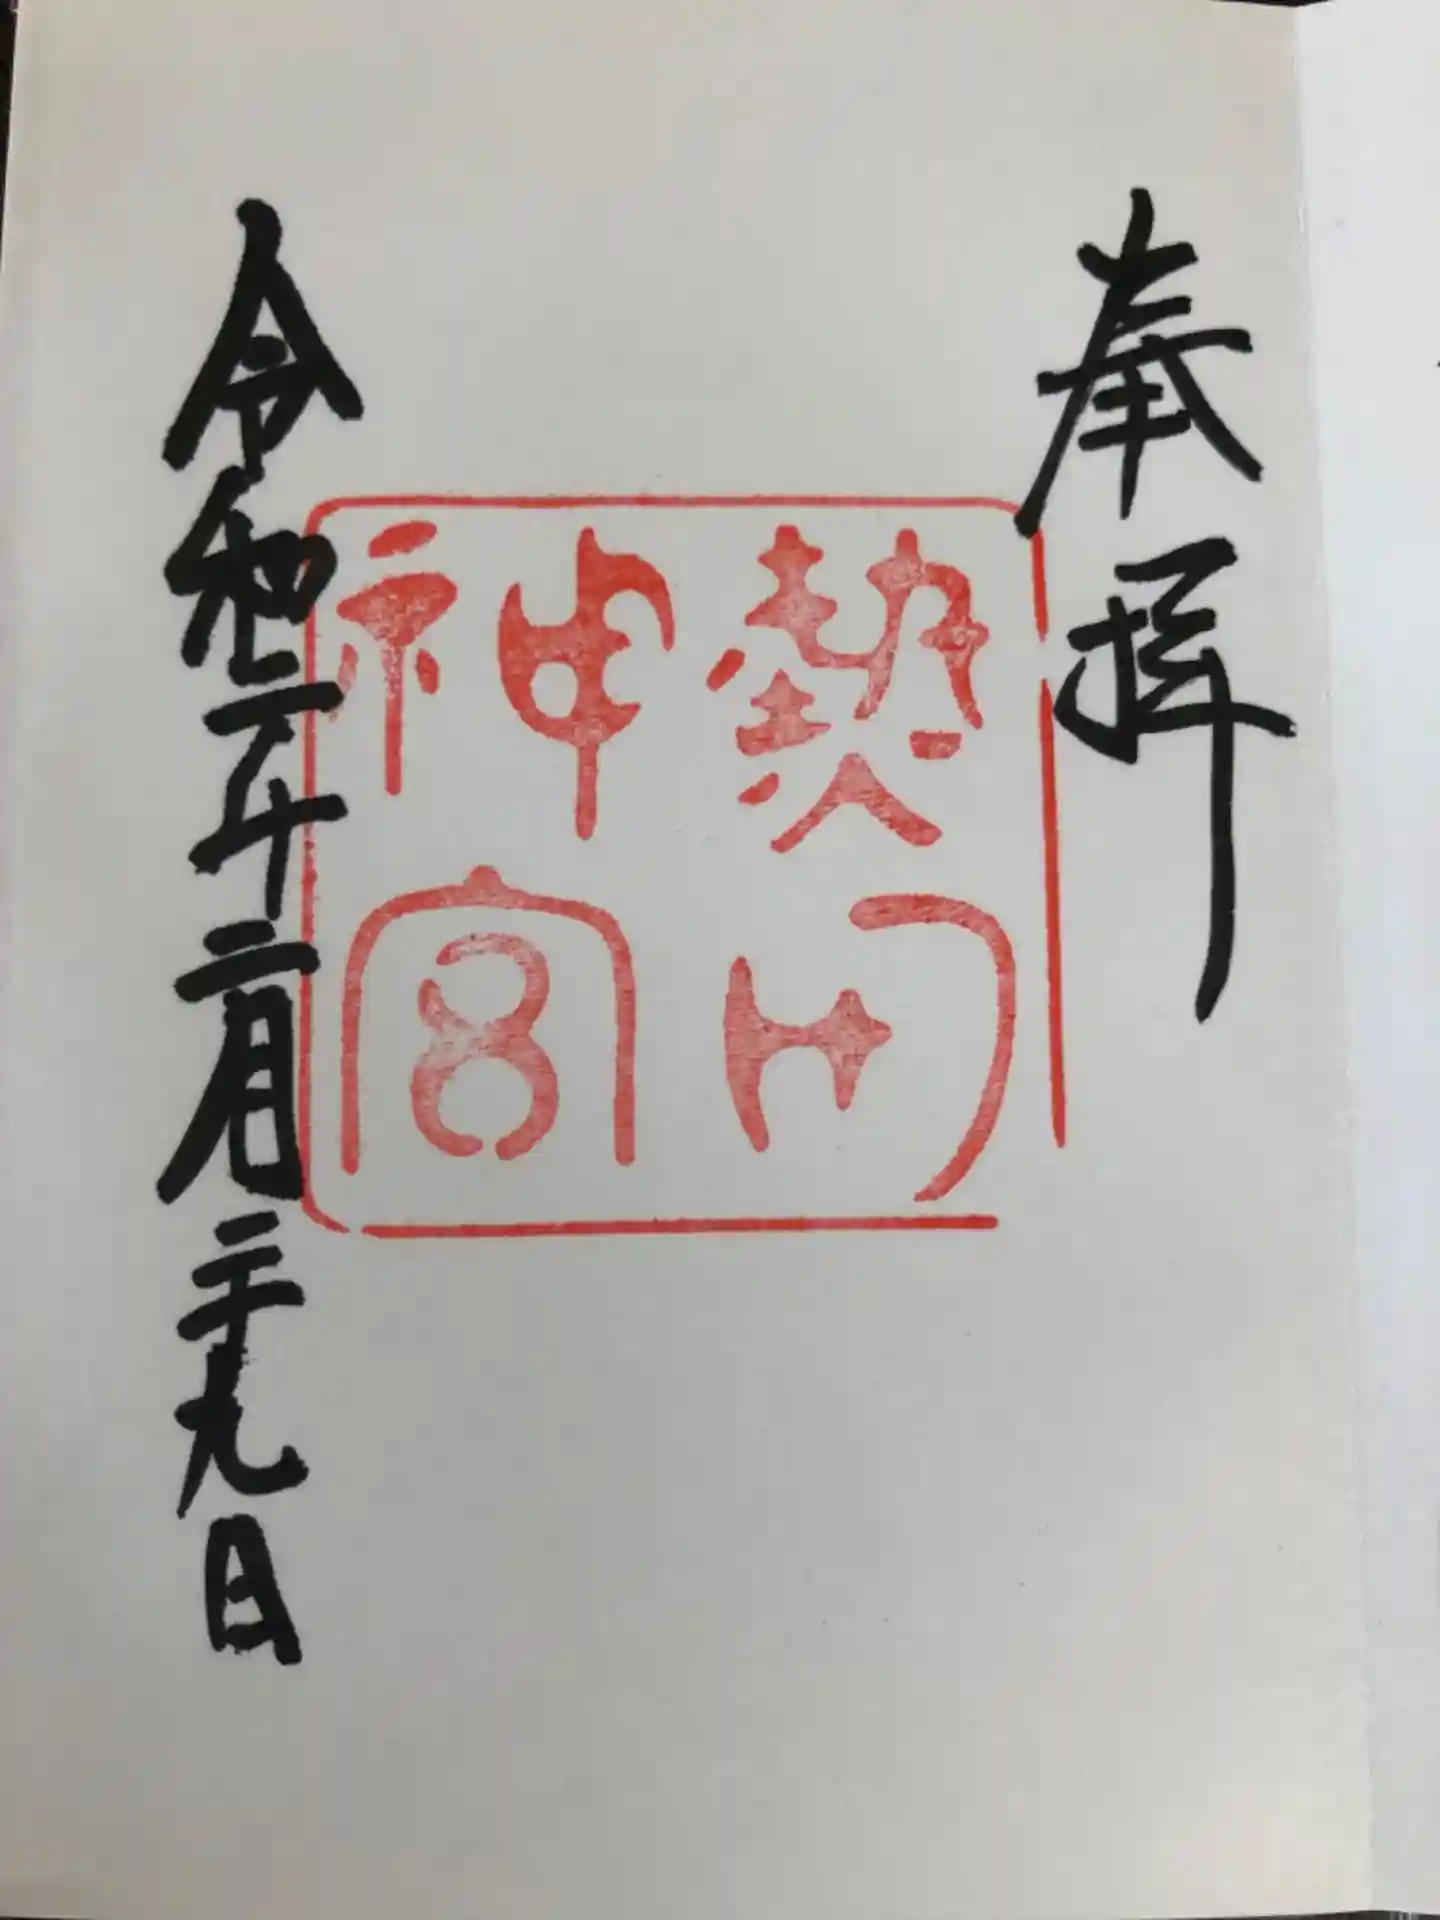 奉拝
熱田
神宮
令和二年二月二十九日